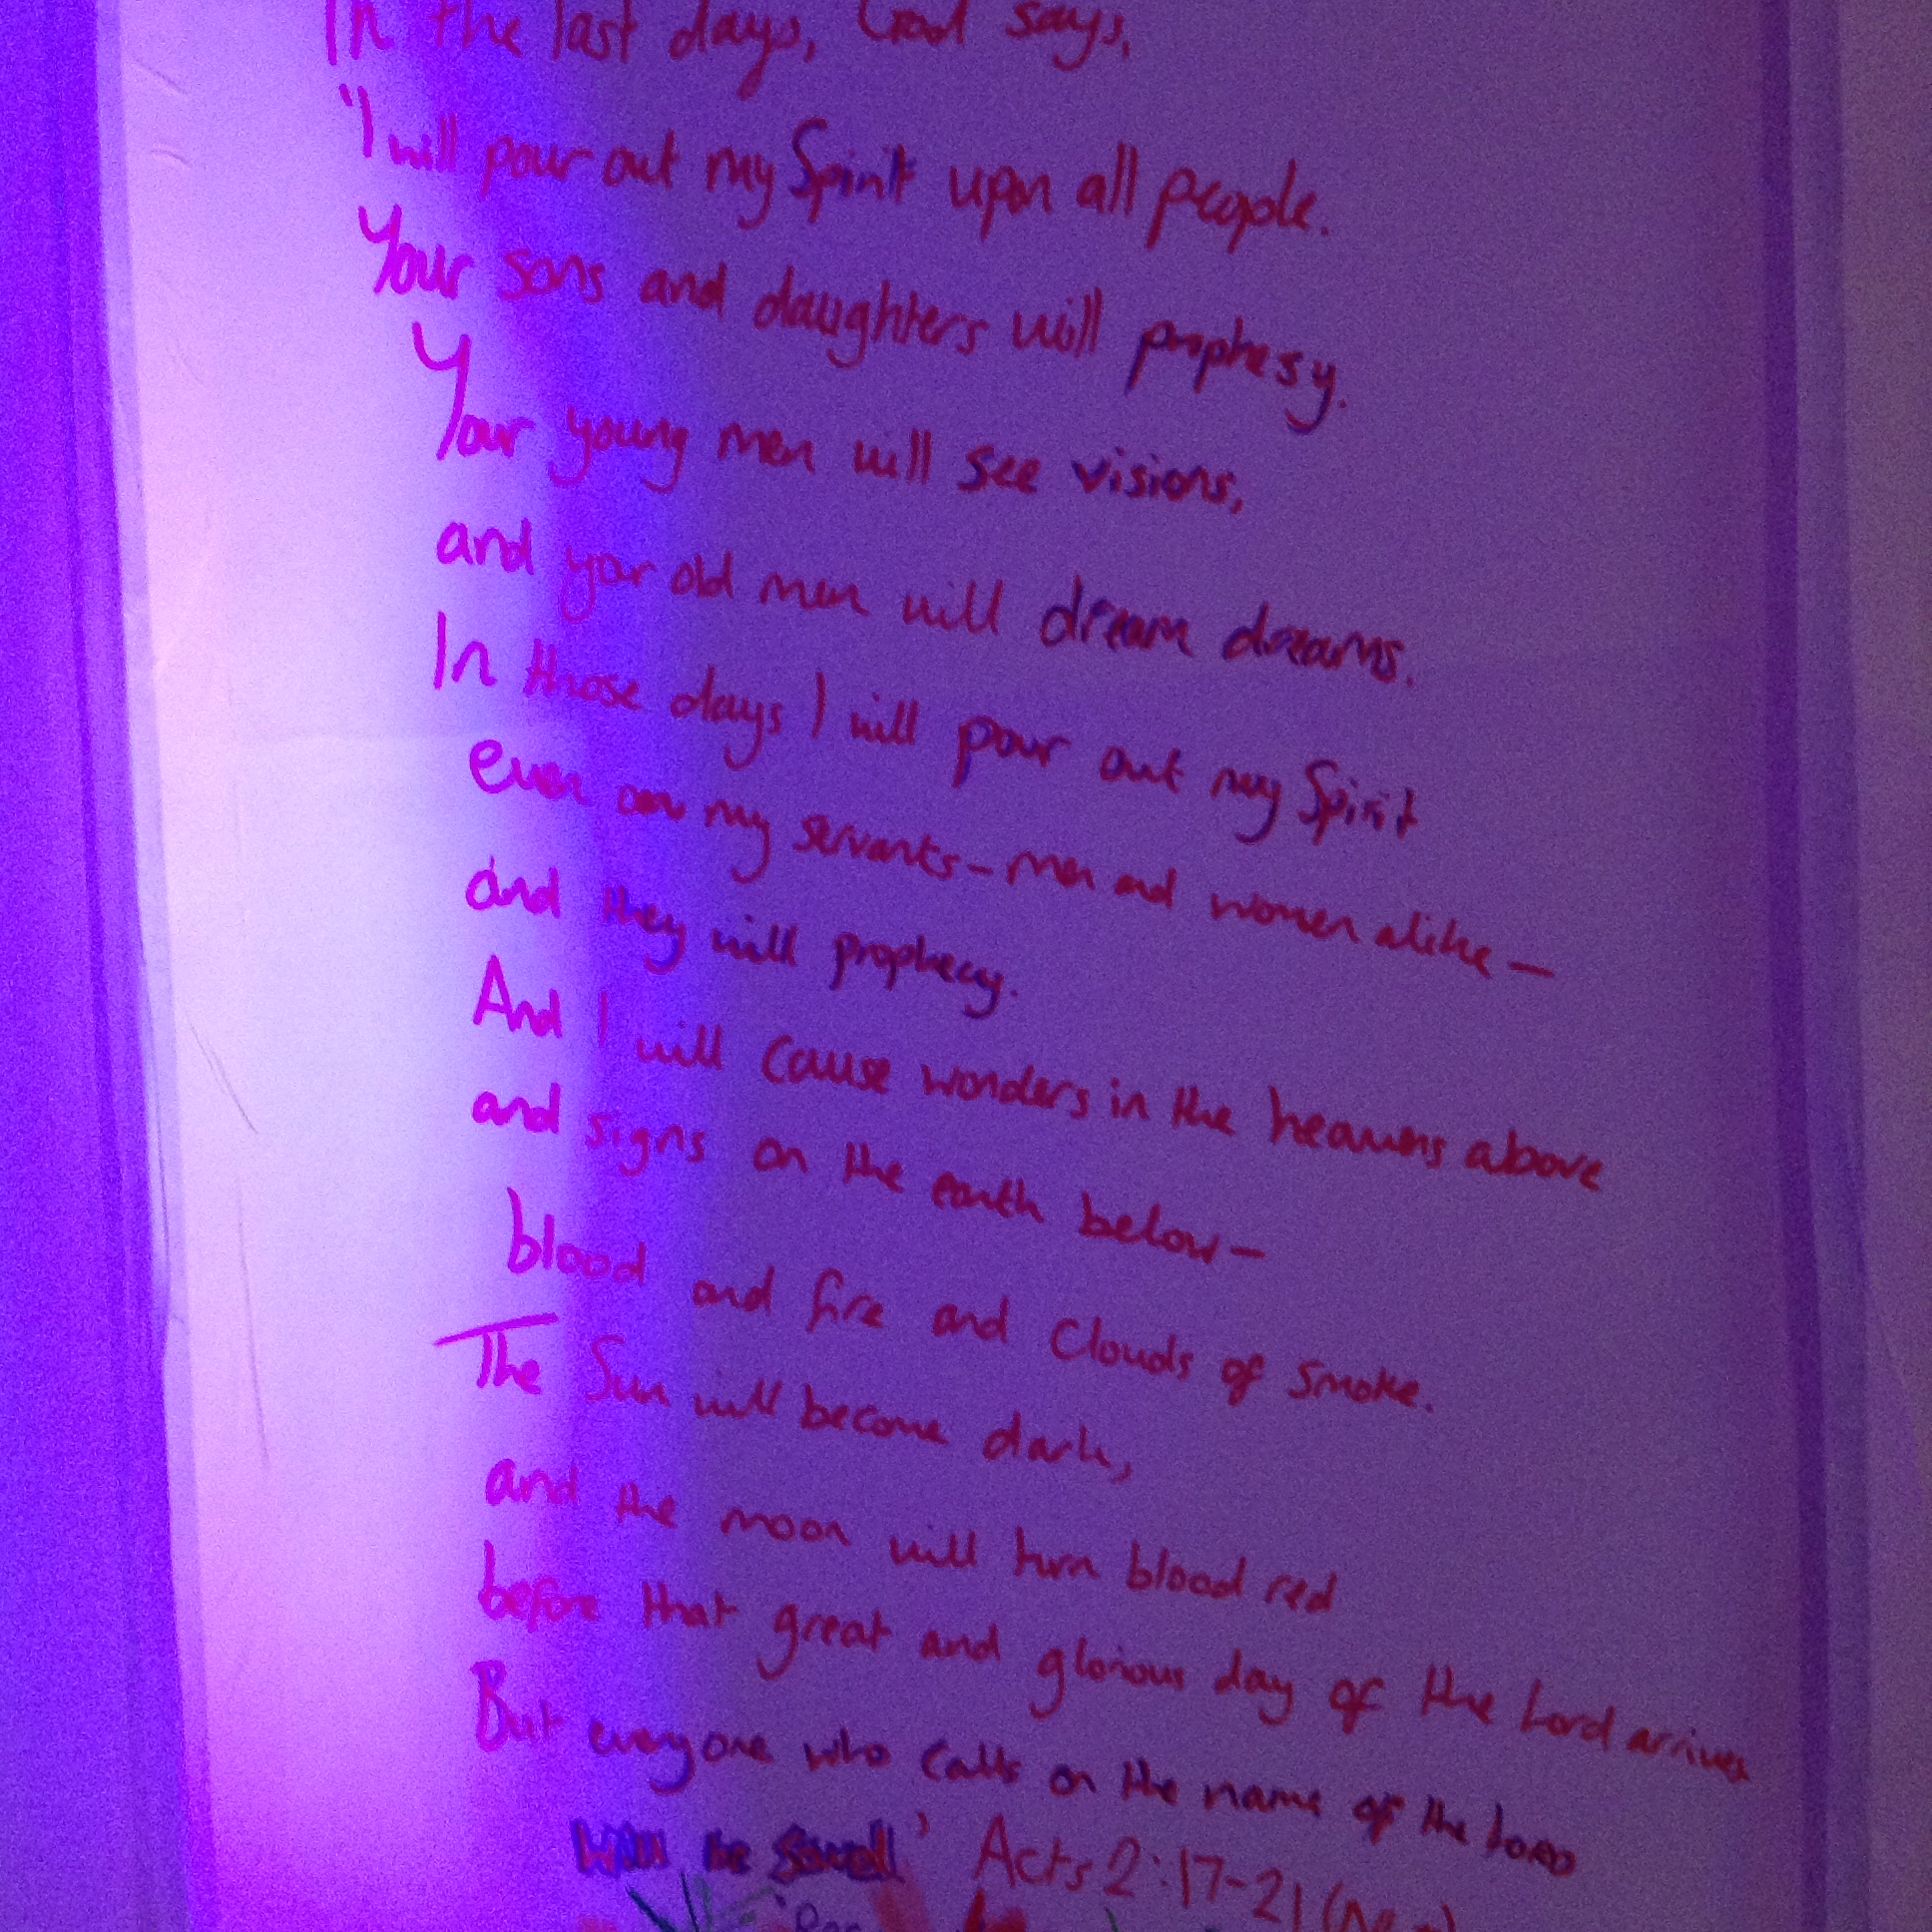 In the last days, God says,
"I will pour out my Spirit upon all people.
Your sons and daughters will prophesy.
Your young men will see visions,
and your old men will dream dreams.
In those days I will pour out my Spirit
even on my servants – men and women alike –
and they will prophecy.
And I will cause wonders in the heavens above
and signs on the earth below –
blood and fire and clouds of smoke.
The Sun will become dark,
and the moon will turn blood red
before that great and glorious day of the Lord arrives
But everyone who calls on the name of the LORD
Will be saved' Acts 2:17-21